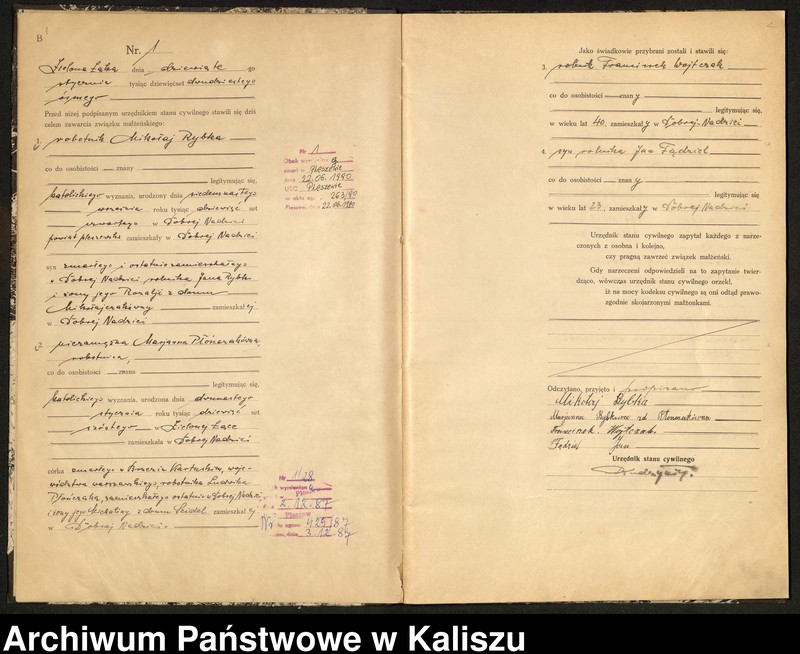 B
Nr. 1
Zielona Łąka dnia dziewiąte go
stycznia tysiąc dziewięćset dwudziestego
ósmego
Przed niżej podpisanym urzędnikiem stanu cywilnego stawili się dziś
celem zawarcia związku małżeńskiego:
1. robotnik Mikołaj Rybka
co do osobistości znany
legitymując się,
katolickiego wyznania, urodzony dnia siedemnastego
września roku tysiąc dziewięć set
czwartego w Dobrej Nadziei
powiat pleszewski zamieszkały w Dobrej Nadziei
syn zmarłego i ostatnio zamieszkałego
w Dobrej Nadziei, robotnika Jana Rybki
i żony jego Rozalji z domu
Mikołajczakówny zamieszkał ej
w Dobrej Nadziei
2. niezamężna Marjanna Płończakówna,
robotnica,
co do osobistości znana
legitymując się,
katolickiego wyznania, urodzona dnia dwunastego
stycznia roku tysiąc dziewięć set
szóstego w Zielonej Łące
zamieszkała w Dobrej Nadziei
córka zmarłego w Kartuskim, woje-
wództwa warszawskiego, robotnika Ludwika
Płończaka, zamieszkałego ostatnio w Dobrej Nadziei
i żony jego z domu Seidel zamieszkał ej
w Dobrej Nadziei.
Nr 1
w Pleszewie
dnia 22.06.1990
USC Pleszewie
nr aktu zg. 263/90
Pleszew, dnia 22.06.1990
Nr 1/28
2.12.87
Pleszew
Nr 425/87
dnia 3.12.87
Jako świadkowie przybrani zostali i stawili się:
3. rolnik Franciszek Wojtczak
co do osobistości znany
legitymując się,
w wieku lat 40, zamieszkały w Dobrej Nadziei
4. syn rolnika Jan Fądziel
co do osobistości znany
legitymując się
w wieku lat 23, zamieszkały w Dobrej Nadziei
Urzędnik stanu cywilnego zapytał każdego z narze-
czonych z osobna i kolejno,
czy pragną zawrzeć związek małżeński.
Gdy narzeczeni odpowiedzieli na to zapytanie twier-
dząco, wówczas urzędnik stanu cywilnego orzekł,
iż na mocy kodeksu cywilnego są oni odtąd prawo-
zgodnie skojarzonymi małżonkami.
Odczytano, przyjęto i podpisano
Mikołaj Rybka
Marjanna Rybkowa zd Płończakówna
Franciszek Wojtczak
Fądziel Jan
Urzędnik stanu cywilnego
Archiwum Państwowe w Kaliszu